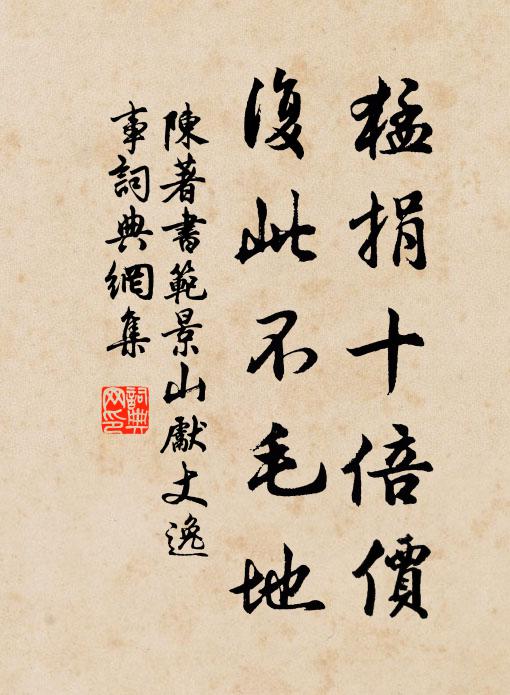 猛捐十倍價
復此不毛地
陳著書範景山獻丈逸
事詞典網集
詞典網印